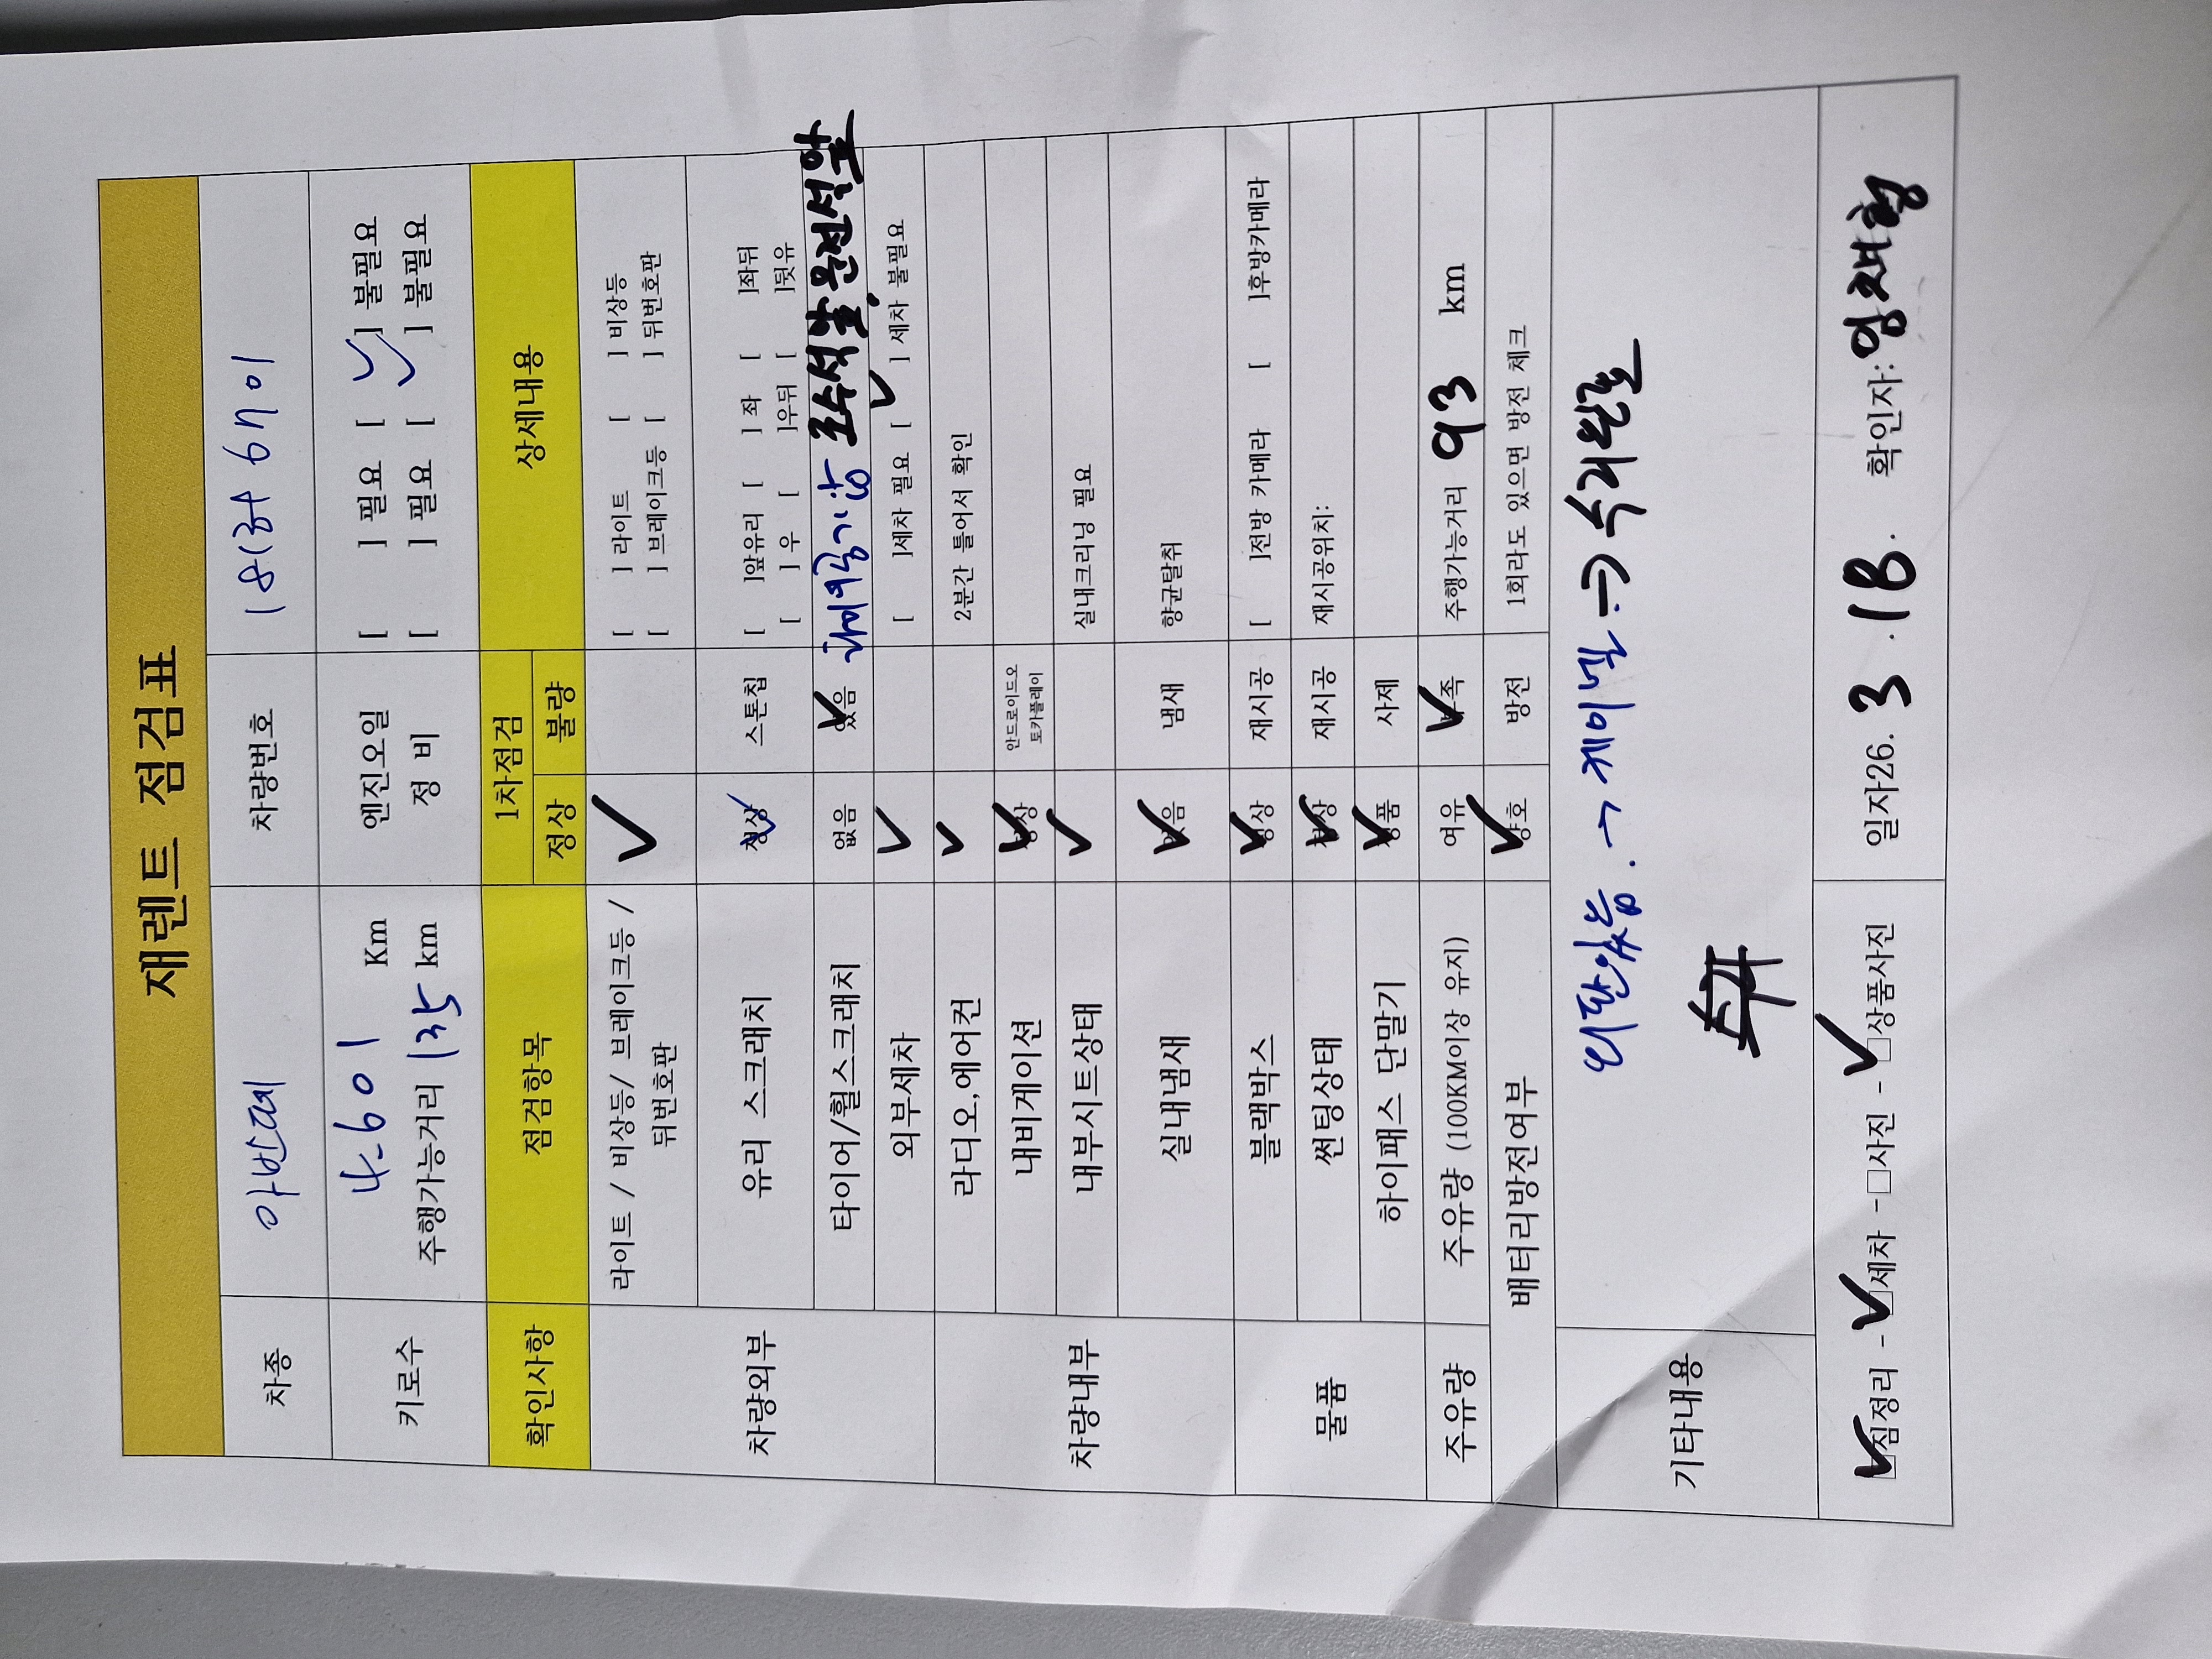 재렌트 점검표
차종 아반떼 차량번호
키로수 Km 엔진오일 [ ] 필요 [✓] 불필요
주행가능거리 135 km 정 비 [ ] 필요 [✓] 불필요
확인사항 점검항목 1차점검 상세내용
정상 불량
차량외부 라이트 / 비상등/ 브레이크등 / 뒤번호판 ✓ [ ] 라이트 [ ] 비상등
[ ] 브레이크등 [ ] 뒤번호판
유리 스크래치 정상 ✓ 스톤칩 [ ]앞유리 [ ] 좌 [ ]좌뒤
[ ] 우 [ ]우뒤 [ ]뒷유
타이어/휠스크래치 없음 있음 ✓ 조수석앞, 운전석앞
외부세차 ✓ [ ]세차 필요 [✓] 세차 불필요
차량내부 라디오,에어컨 ✓ 2분간 틀어서 확인
내비게이션 정상 ✓ 안드로이드오토카플레이
내부시트상태 ✓ 실내크리닝 필요
실내냄새 없음 ✓ 냄새 향균탈취
물품 블랙박스 정상 ✓ 재시공 [ ]전방 카메라 [ ]후방카메라
썬팅상태 정상 ✓ 재시공 재시공위치:
하이패스 단말기 정품 ✓ 사제
주유량 주유량 (100KM이상 유지) 여유 부족 ✓ 주행가능거리 93 km
배터리방전여부 양호 ✓ 방전 1회라도 있으면 방전 체크
기타내용 외판있음. → 케미넬 => 수리완료
☑짐정리 - ☑세차 - □사진 - ☑상품사진 일자26. 3 . 18 . 확인자: